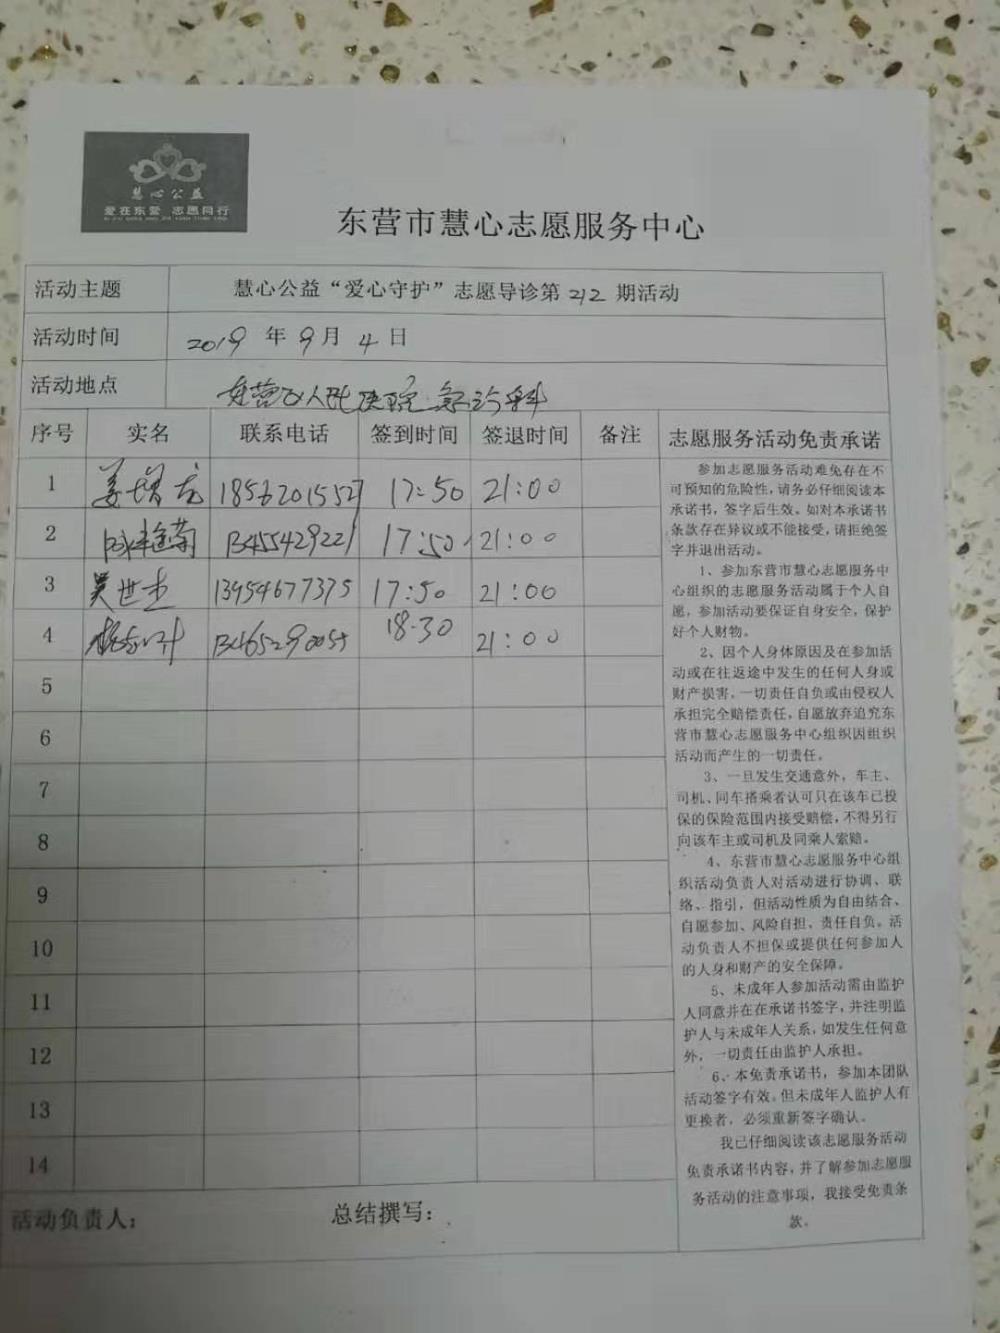 慧心公益
爱在东营 志愿同行
东营市慧心志愿服务中心
活动主题 慧心公益“爱心守护”志愿导诊第212期活动
活动时间 2019年9月4日
活动地点 东营区人民医院急诊科
序号 实名 联系电话 签到时间 签退时间 备注 志愿服务活动免责承诺
1 姜增龙 18562015527 17:50 21:00
2 13455429221 17:50 21:00
3 吴世杰 13954677375 17:50 21:00
4 18:30 21:00
5
6
7
8
9
10
11
12
13
14
参加志愿服务活动难免存在不
可预知的危险性，请务必仔细阅读本
承诺书，签字后生效。如对本承诺书
条款存在异议或不能接受，请拒绝签
字并退出活动。
1、参加东营市慧心志愿服务中
心组织的志愿服务活动属于个人自
愿，参加活动要保证自身安全，保护
好个人财物。
2、因个人身体原因及在参加活
动或在往返途中发生的任何人身或
财产损害，一切责任自负或由侵权人
承担完全赔偿责任，自愿放弃追究东
营市慧心志愿服务中心组织因组织
活动而产生的一切责任。
3、一旦发生交通意外，车主、
司机、同车搭乘者认可只在该车已投
保的保险范围内接受赔偿，不得另行
向该车主或司机及同乘人索赔。
4、东营市慧心志愿服务中心组
织活动负责人对活动进行协调、联
络、指引，但活动性质为自由结合、
自愿参加、风险自担、责任自负。活
动负责人不担保或提供任何参加人
的人身和财产的安全保障。
5、未成年人参加活动需由监护
人同意并在在承诺书签字，并注明监
护人与未成年人关系，如发生任何意
外，一切责任由监护人承担。
6、本免责承诺书，参加本团队
活动签字有效。但未成年人监护人有
更换者，必须重新签字确认。
我已仔细阅读该志愿服务活动
免责承诺书内容，并了解参加志愿服
务活动的注意事项，我接受免责条
款。
活动负责人： 总结撰写：